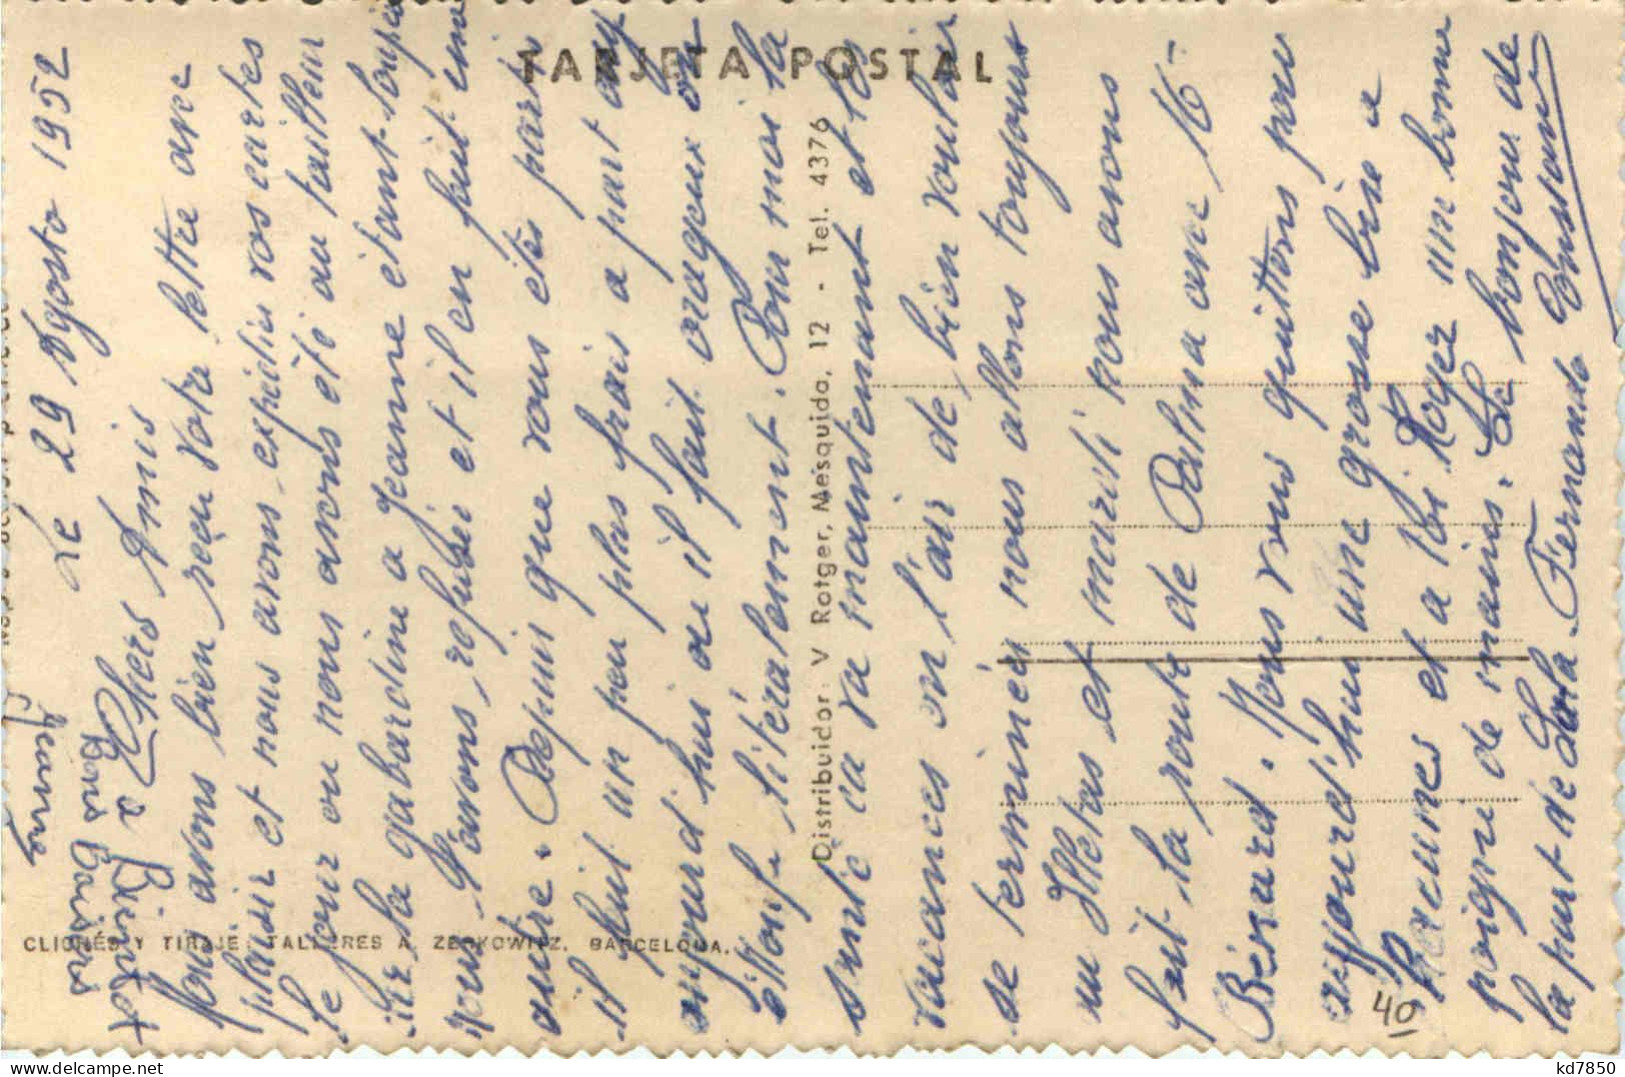 Le 29 Agosto 1952
Chers Amis
Nous avons bien reçu votre lettre avec
plaisir et nous avons expédier vos cartes
le jour ou nous avons été au tailleur
la gabardine a Jeanne étant loupée
nous l'avons refusée et il en fait une
autre. Depuis que vous êtes parti
il fait un peu plus frais a part
aujourd'hui ou il fait orageux on
étouffe litéralement. Pour moi la
santé ca va maintenant et les
vacances on l'air de bien vouloir
se terminer nous allons toujours
au Illetas et mardi nous avons
fait la route de Palma avec Mr
Bénard. Nous vous quittons pour
aujourd'hui une grosse bise a
Lucunes et a toi Roger une bonne
poigné de mains. Le bonjour de
la part de Lola Fernando Constant
a Bientot
Bons Baisers
Jeanne
TARJETA POSTAL
Distribuidor: V Rotger, Mesquida, 12 - Tel. 4376
CLICHÉS Y TIRAJE: TALLERES A. ZERKOWITZ. BARCELONA.
40
kd7850